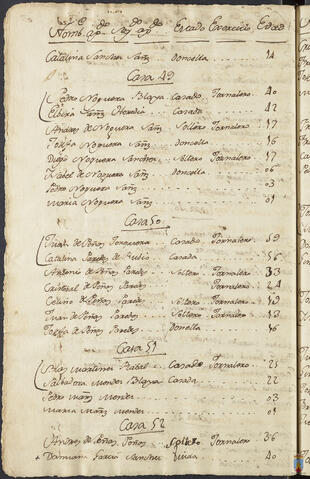 Nomb.s 1.os Ap.dos 2.os Ap.dos Estado Exercicio Edad
Catalina Sanchez Sanz Doncella 14
Casa 49
Pedro Noguera Blaya Casado Jornalero 40
Elbira Sanz Heredia Casada 42
Andres de Noguera Sanz Soltero Jornalero 17
Josefa Noguera Sanz Doncella 16
Diego Noguera Sanchez Soltero Jornalero 17
Isabel de Noguera Sanz Doncella 06
Pedro Noguera Sanz 03
Maria Noguera Sanz 01
Casa 50
Juan de Peñas Casado Jornalero 59
Catalina Paredes de Rubio Casada 56
Antonio de Peñas Paredes Soltero Jornalero 33
Cristobal de Peñas Paredes Jornalero 24
de Peñas Paredes Soltero Jornalero
Juan de Peñas Paredes Soltero Jornalero 13
Josefa de Peñas Paredes Doncella 16
Casa 51
Blas Martinez Casado Jornalero 21
Salvadora Mendez Blaya Casada 22
Pedro Mendez 03
Maria Mendez 01
Casa 52
Andres de Peñas Peñas Soltero Jornalero 36
Damiana Garcia Sanchez Viuda 40